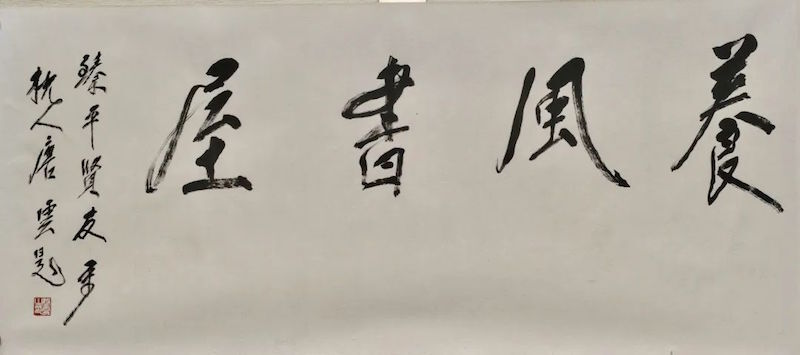 養風書屋
臻平賢友屬
杭人唐雲題